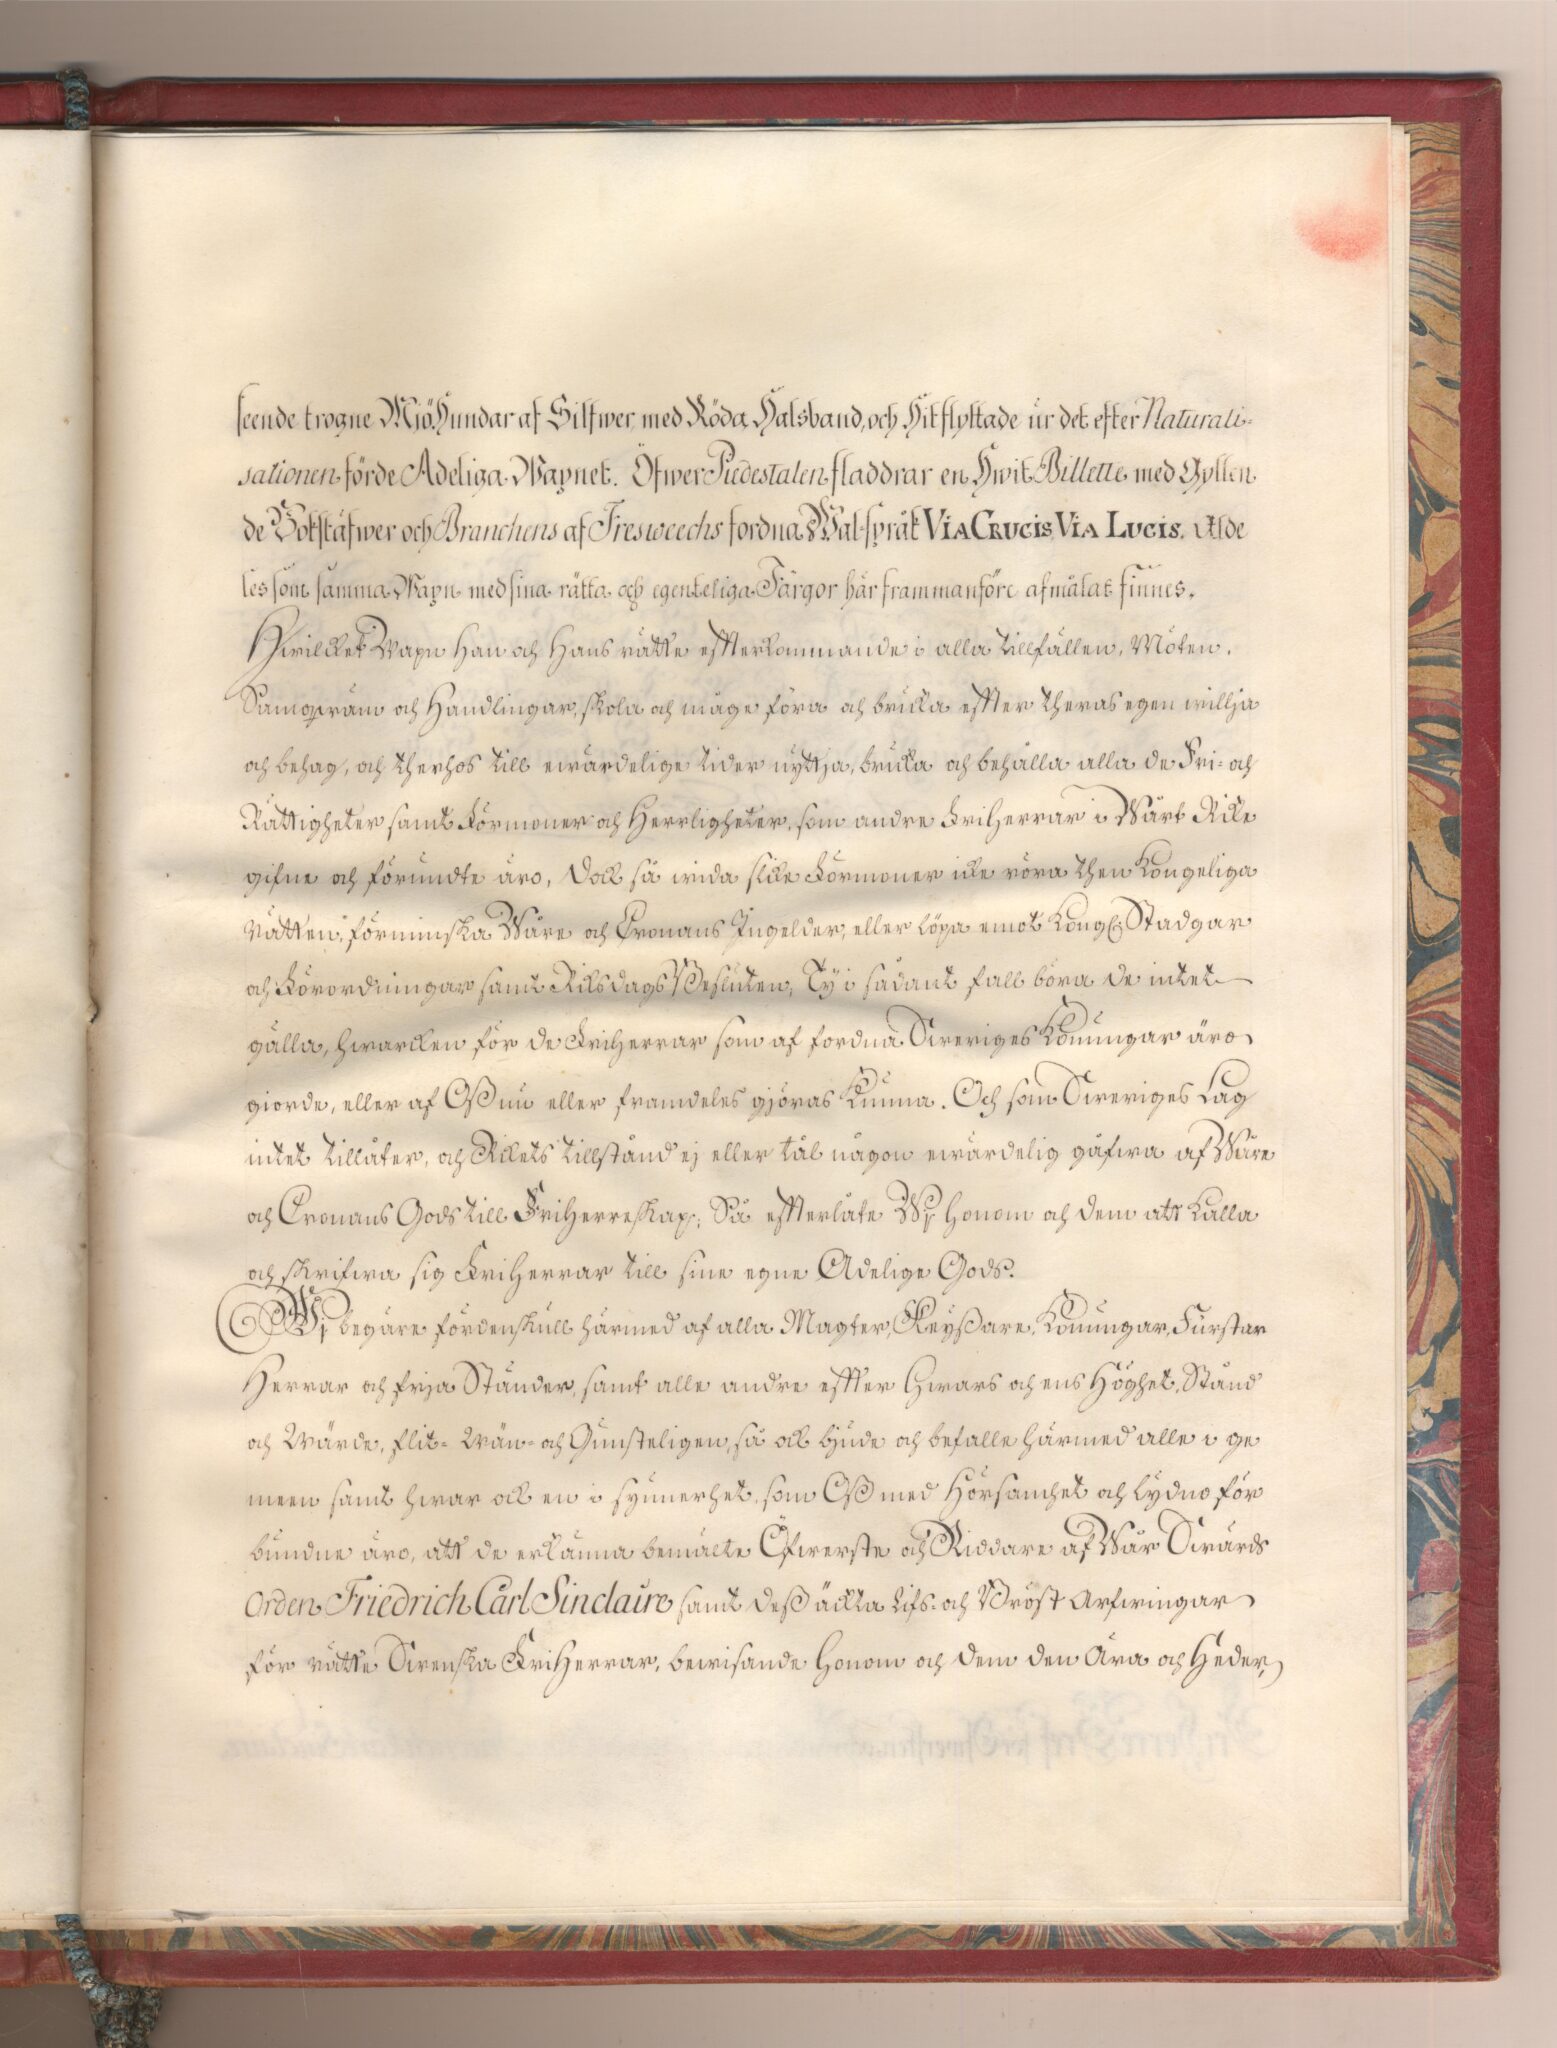 seende trogne Mjöhundar af Silfwer, med Röda Halsband, och hitflyttade ur det efter Naturali-
sationen förde Adeliga Wapnet. Öfwer Piedestalen fladdrar en hwit Billette med Gyllen
de Bokstäfwer och Branchens af fordna Wal-språk VIA CRUCIS VIA LUCIS. Alde
les som samma Wapn med sina rätta och egenteliga Färgor här frammanföre afmålat finnes.
Hwilcket Wapn Han och Hans rätte effterkommande i alla tillfällen, Möten,
Samqwäm och Handlingar, skola och måge föra och bruka effter theras egen willja
och behag, och therhos till ewärdelige tider nyttja, bruka och behålla alla de Fri- och
Rättigheter samt Förmoner och Herrligheter, som andre FriHerrar i Wårt Rike
gifne och förundte äro, Dock så wida slike Förmoner icke röra then Kongeliga
Rätten, förminska Wåre och Cronans Ingelder, eller löpa emot Kongl. Stadgar
och Förordningar samt Riksdags Besluten, Ty i sådant fall böra de intet
gälla, hwarcken för de FriHerrar som af fordna Sweriges Konungar äro
giorde, eller af Oß nu eller framdeles gjöras kunna. Och som Sweriges Lag
intet tillåter, och Rikets tillstånd ej eller tål någon ewärdelig gåfwa af Wåre
och Cronans Gods till FriHerreskap; Så effterlåte Wi honom och dem att kalla
och skrifwa sig FriHerrar till sine egne Adelige Gods.
Wi begäre fördenskull härmed af alla Magter, Keyßare, Konungar, Furstar
Herrar och frja Ständer, samt alle andre effter hwars och ens Höghet, Stånd
och Wärde, flit- Wän- och Gunsteligen, så ock bjude och befalle härmed alle i ge
meen samt hwar ock en i synnerhet, som Oß med Hörsamhet och lydno för
bundne äro, att de erkänna bemälte Öfwerste och Riddare af Wår Swärds
Orden Friedrich Carl Sinclaire samt deß äckta Lifs- och Bröst Arfwingar
för rätte Swenska FriHerrar, bewisande honom och dem den Ära och Heder,